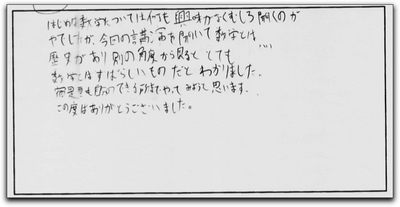 はじめは数学については何も興味がなくむしろ聞くのが
やでしたが、今回の講演を聞いて数学とは
歴史があり別の角度から見ると とても
数学とはすばらしいもの だと わかりました。
自分のできる
みようと思います。
この度はありがとうございました。